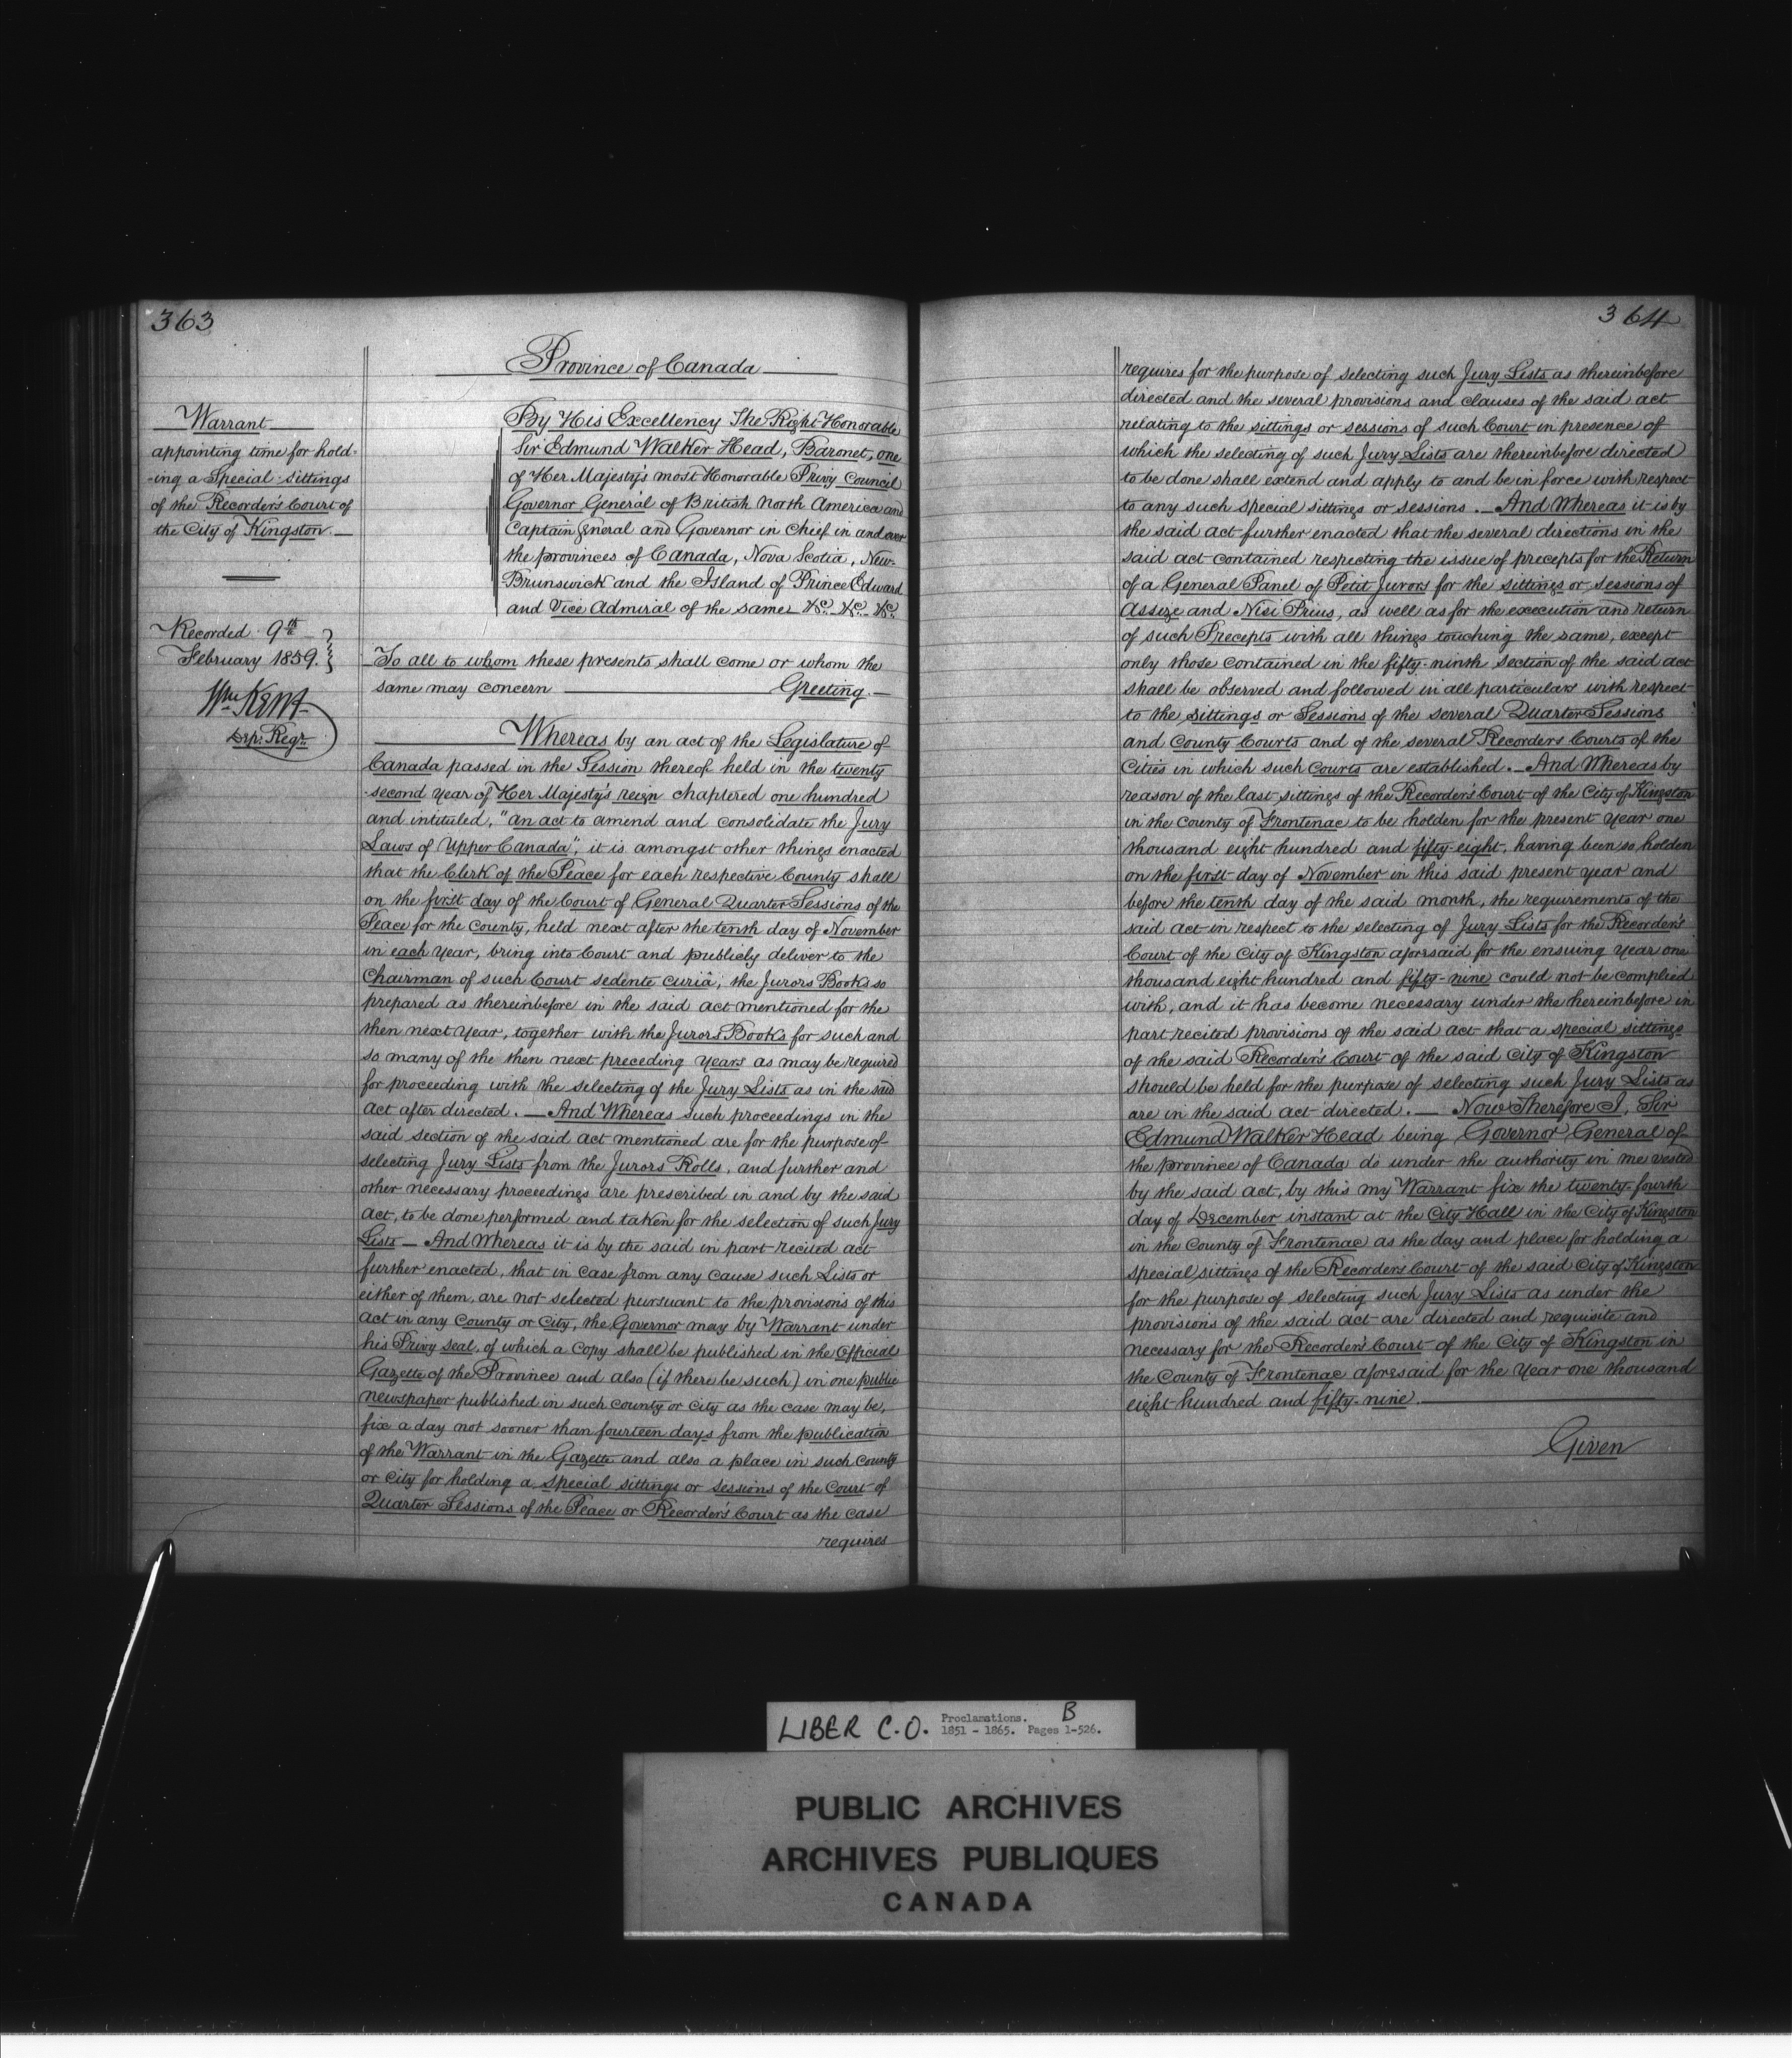 363
Province of Canada
Warrant
appointing time for hold-
-ing a Special Sittings
of the Recorder's Court of
the City of Kingston.
Recorded 9th
February 1859.
Wm Kent
Dep. Regr.
By His Excellency The Right Honorable
Sir Edmund Walker Head, Baronet, one
of Her Majesty's most Honorable Privy Council
Governor General of British North America and
Captain General and Governor in Chief in and over
the provinces of Canada, Nova Scotia, New-
Brunswick and the Island of Prince Edward
and Vice Admiral of the same &c. &c. &c.
To all to whom these presents shall come or whom the
same may concern Greeting.
Whereas by an act of the Legislature of
Canada passed in the Session thereof held in the twenty
-second year of Her Majesty's reign chaptered one hundred
and intituled, "an act to amend and consolidate the Jury
Laws of Upper Canada", it is amongst other things enacted
that the Clerk of the Peace for each respective County shall
on the first day of the Court of General Quarter Sessions of the
Peace for the County, held next after the tenth day of November
in each year, bring into Court and publicly deliver to the
Chairman of such Court sedente curiâ, the Jurors Books so
prepared as thereinbefore in the said act mentioned for the
then next year, together with the Jurors Books for such and
so many of the then next preceding years as may be required
for proceeding with the selecting of the Jury Lists as in the said
act after directed. — And Whereas such proceedings in the
said section of the said act mentioned are for the purpose of
selecting Jury Lists from the Jurors Rolls, and further and
other necessary proceedings are prescribed in and by the said
act, to be done performed and taken for the selection of such Jury
Lists — And Whereas it is by the said in part recited act
further enacted, that in case from any cause such Lists or
either of them, are not selected pursuant to the provisions of this
act in any County or City, the Governor may by Warrant under
his Privy seal, of which a copy shall be published in the Official
Gazette of the Province and also (if there be such) in one public
newspaper published in such county or city as the case may be,
fix a day not sooner than fourteen days from the publication
of the Warrant in the Gazette and also a place in such County
or City for holding a special sittings or sessions of the Court of
Quarter Sessions of the Peace or Recorder's Court as the case
requires
364
requires for the purpose of selecting such Jury Lists as thereinbefore
directed and the several provisions and clauses of the said act
relating to the sittings or sessions of such Court in presence of
which the selecting of such Jury Lists are thereinbefore directed
to be done shall extend and apply to and be in force with respect
to any such special sittings or sessions. — And Whereas it is by
the said act further enacted that the several directions in the
said act contained respecting the issue of precepts for the Return
of a General Panel of Petit Jurors for the sittings or sessions of
Assize and Nisi Prius, as well as for the execution and return
of such Precepts with all things touching the same, except
only those contained in the fifty-ninth section of the said act
shall be observed and followed in all particulars with respect
to the sittings or Sessions of the several Quarter Sessions
and County Courts and of the several Recorders Courts of the
Cities in which such Courts are established. — And Whereas by
reason of the last sittings of the Recorder's Court of the City of Kingston
in the County of Frontenac to be holden for the present year one
thousand eight hundred and fifty-eight, having been so holden
on the first day of November in this said present year and
before the tenth day of the said month, the requirements of the
said act in respect to the selecting of Jury Lists for the Recorder's
Court of the City of Kingston aforesaid for the ensuing year one
thousand eight hundred and fifty-nine could not be complied
with, and it has become necessary under the hereinbefore in
part recited provisions of the said act that a special sittings
of the said Recorder's Court of the said City of Kingston
should be held for the purpose of selecting such Jury Lists as
are in the said act directed. — Now Therefore I, Sir
Edmund Walker Head being Governor General of
the province of Canada do under the authority in me vested
by the said act, by this my Warrant fix the twenty-fourth
day of December instant at the City Hall in the City of Kingston
in the County of Frontenac as the day and place for holding a
special sittings of the Recorders Court of the said City of Kingston
for the purpose of selecting such Jury Lists as under the
provisions of the said act are directed and requisite and
necessary for the Recorder's Court of the City of Kingston in
the County of Frontenac aforesaid for the Year one thousand
eight hundred and fifty-nine.
Given
LIBER C.O. Proclamations. B
1851 - 1865. Pages 1-526.
PUBLIC ARCHIVES
ARCHIVES PUBLIQUES
CANADA